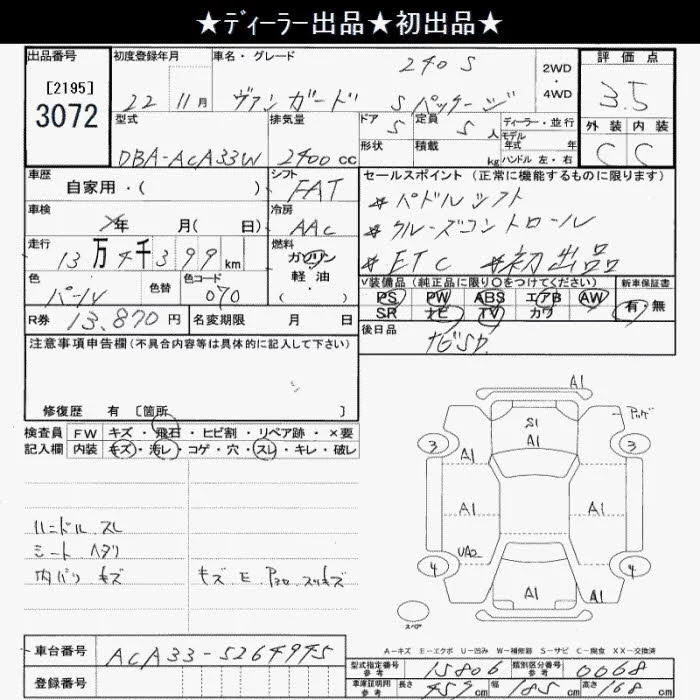 ★ディーラー出品★初出品★
出品番号 初度登録年月 車名・グレード 240S 2WD・4WD 評価点
[2195]
3072
22 11月 ヴァンガード Sパッケージ 3.5
型式 排気量 ドア 5 定員 5人 ディーラー・並行 外装 内装
モデル年式 年
DBA-ACA33W 2400cc 形状 積載 kg ハンドル 左・右 C C
車歴 シフト セールスポイント (正常に機能するものに限ります)
自家用・( ) FAT *パドルシフト
車検 冷房 *クルーズコントロール
年 月( 日) AAC
走行 燃料 *ETC *初出品
13万4千399km ガソリン
軽・油
・( )
色 色替 色コード ∨装備品 (純正品に限り○をつけてください) 新車保証書
パール 070 PS PW ABS エアB AW 有・無
R券 13,870円 名変期限 月 日 SR ナビ TV カワ
後日品
ナビSD.
注意事項申告欄 (不具合内容等は具体的に記入して下さい)
修復歴 有 [箇所 ]
検査員 FW キズ・飛石・ヒビ割・リペア跡・×要
記入欄 内装 キズ・汚レ・コゲ・穴・スレ・キレ・破レ
ハンドル スレ
シート ヘタリ
内バリ キズ
A1
S1
A1
3
3
A1
A1
A1
A1
UA2
4
4
A1
A1
スペア
A-キズ E-エクボ U-凹み W-補修跡 S-サビ C-腐食 XX-交換済
車台番号 ACA33-5264945
登録番号
型式指定番号 参考 15806 類別区分番号 参考 0068
車庫証明用 参考 長さ 459cm 幅 185cm 高さ 168cm